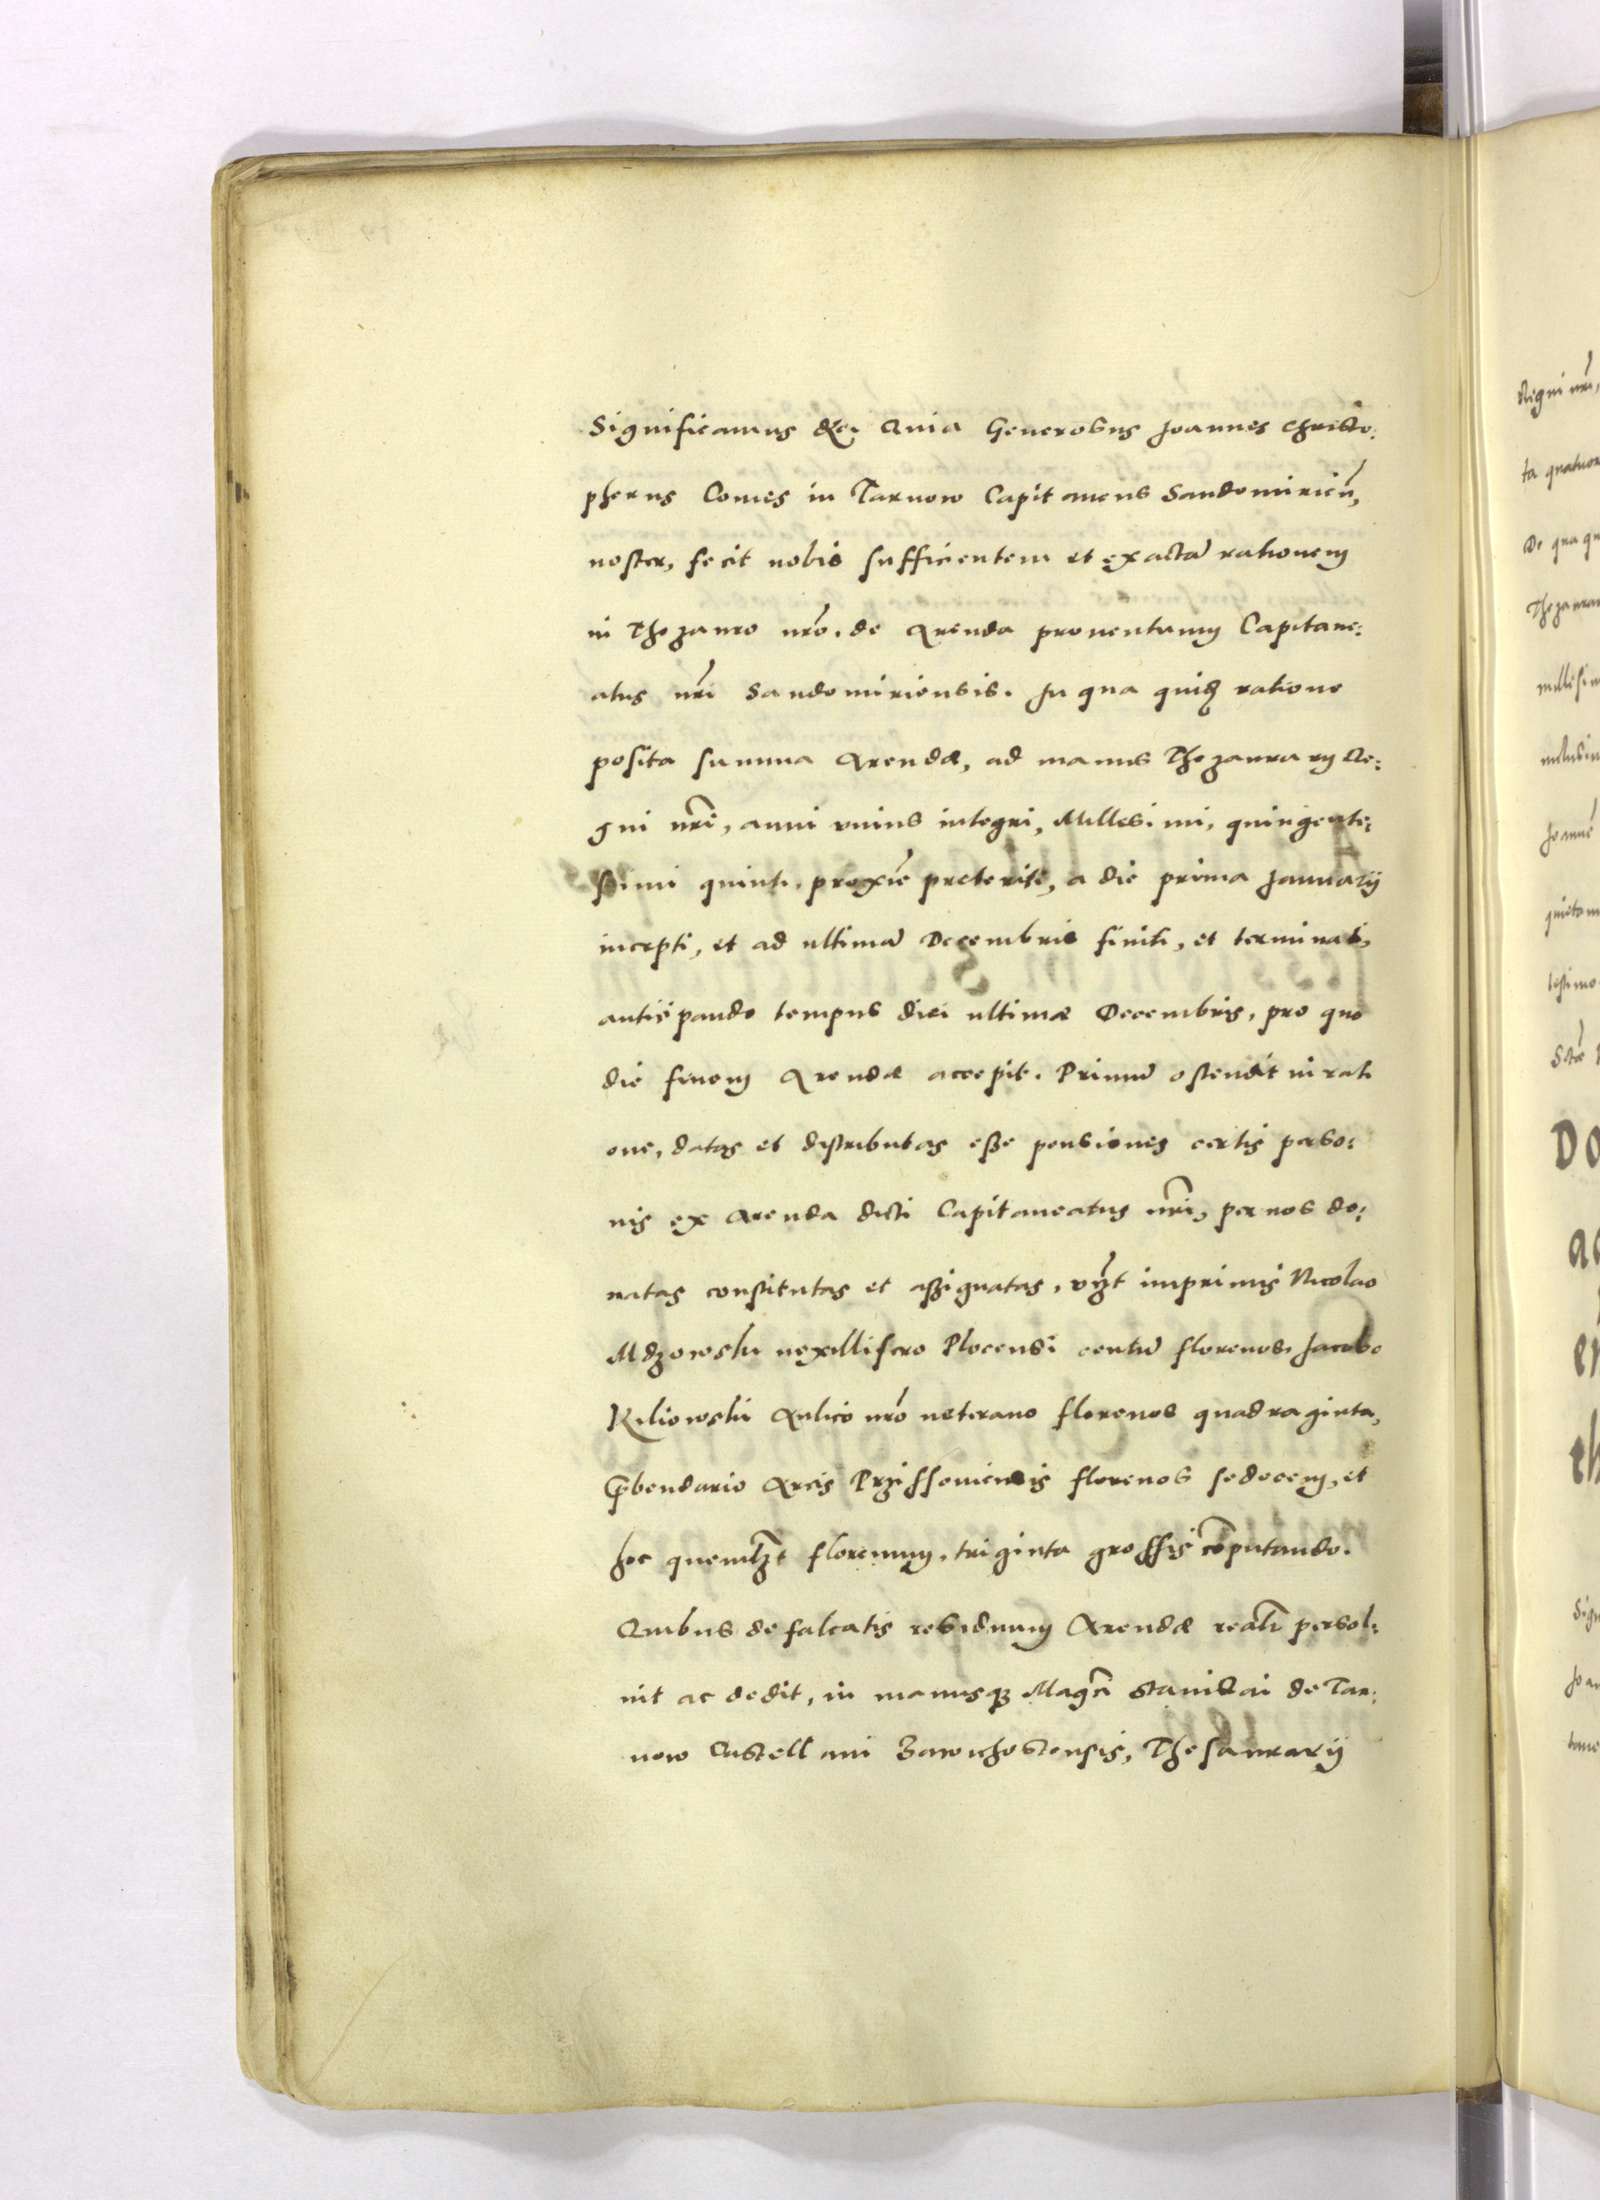 Significamus &c. Quia Generosus Joannes Christo:
pherus Comes in Tarnow Capitaneus Sandomirien̄,
noster, fecit nobis sufficientem et exactā rationem
in Thezauro nr̄o, de Arenda prouentum Capitane:
atus nr̄i Sandomiriensis. In qua quidē ratione
posita summa Arendæ, ad manus Thezaurarij Re:
gni nr̄i, anni unius integri, Millesimi, quingente:
simi quinti, proxīe preteriti, a die prima Januarij
incepti, et ad ultimā Decembris finiti, et terminati,
anticipando tempus diei ultimæ Decembris, pro quo
die finem Arendæ accepit. Primū ostendit in rati
one, datas et distributas esse pensiones certis perso:
nis ex Arenda dicti Capitaneatus nr̄i, per nos do:
natas constitutas et assignatas, vꝫt imprimis Nicolao
Mdzowski uexillifero Plocensi centū florenos. Jacobo
Kiliowski Aulico nr̄o ueterano florenos quadraginta,
P̄bendario Arcis Przissouiensis florenos sedecem, et
hoc quemlꝫt florenum, triginta grossis cōputando.
Quibus defalcatis residuum Arendæ realr̄ persol:
uit ac dedit, in manusqꝫ Magc̄i Stanislai de Tar:
now Castellani Zawichostensis, Thesaurarij
Regni nr̄i,
ta quatuor
De qua qu
Thezaurar
millesim
Joannē
quietam
tesimo
DO
ac
er
th
Sign
Joa
tane